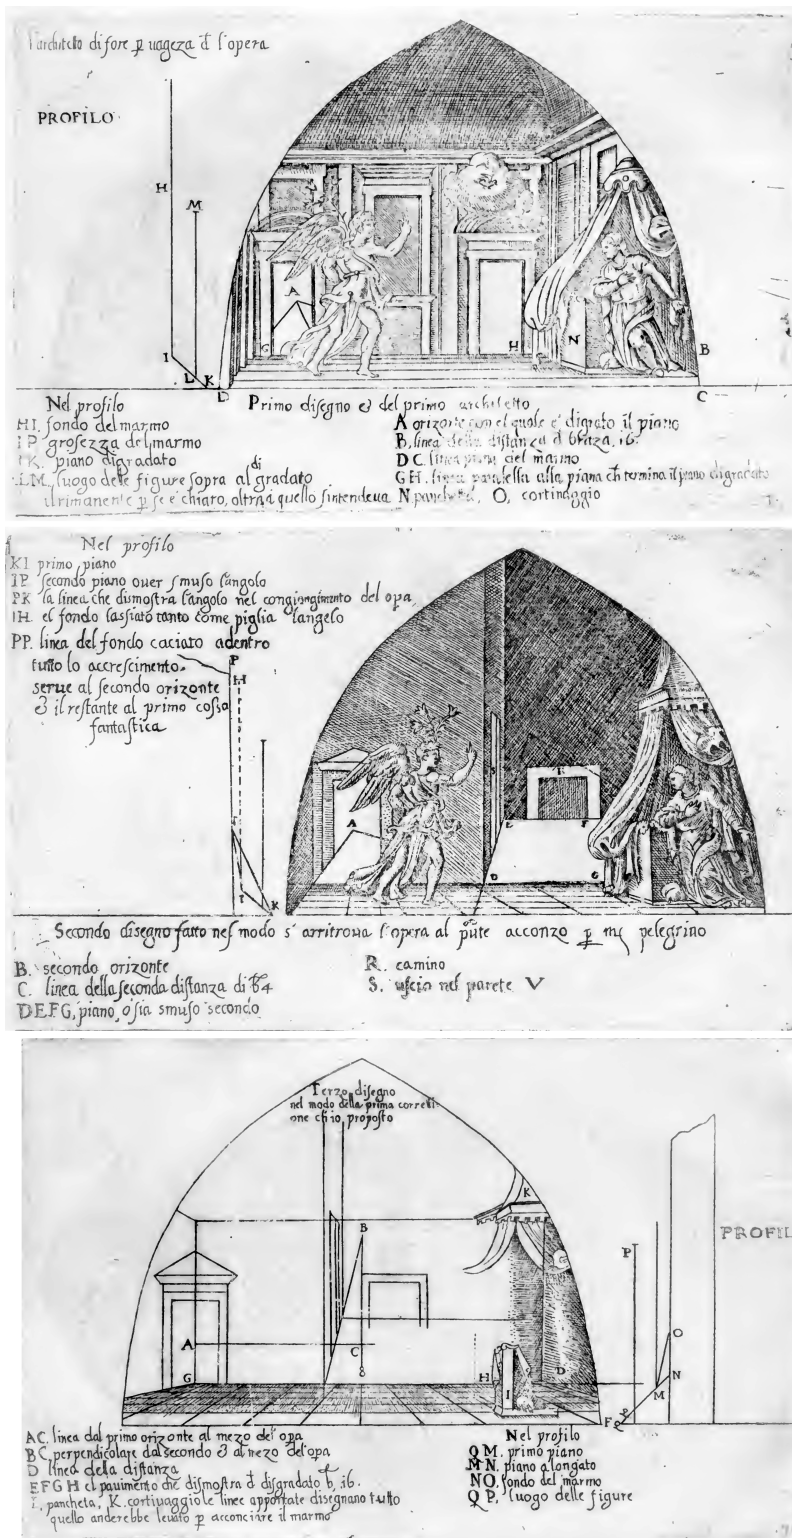 l'architetto di fore p uageza d l'opera
PROFILO
H
M
I
L
K
D
A
G
H
N
B
C
Nel profilo
HI. fondo del marmo
IP. grosezza del marmo
IK. piano digradato
LM. luogo dele figure sopra al gradato
di
il rimanente p se è chiaro, oltra a quello s'intendeua
Primo disegno & del primo architetto
A orizonte con el quale e' digrato il piano
B. linea della distanza d braza. 16.
DC. linea piana del marmo
GH. linea paralella alla piana ch termina il piano digradato
N. panchetta, O, cortinaggio
Nel profilo
KI primo piano
IP secondo piano ouer smuso l'angolo
PK la linea che dismostra l'angolo nel congiongimento del opa
IH. el fondo lassiato tanto come piglia l'angelo
PP. linea del fondo caciato adentro
tutto lo accrescimento
serue al secondo orizonte
& il restante al primo cossa
fantastica
P
H
I
K
A
S
R
E
F
D
G
Secondo disegno fatto nel modo s' arritroua l'opera al pnte acconzo p ms pelegrino
B. secondo orizonte
C. linea della seconda distanza di b 4
DEFG, piano, o sia smuso secondo
R. camino
S. uscio nel parete V
Terzo disegno
nel modo della prima corretti
one ch io proposto
B
K
A
C
8
G
H
I
D
F
PROFIL
P
O
N
M
Q
AC. linea dal primo orizonte al mezo del opa
BC. perpendicolare dal secondo & al mezo del opa
D linea della distanza
EFGH el pauimento che dismostra d disgradato b. 16.
I, pancheta, K. cortinaggio le linee appontate disegnano tutto
quello anderebbe leuato p acconciare il marmo
Nel profilo
QM. primo piano
MN. piano alongato
NO. fondo del marmo
QP. luogo delle figure